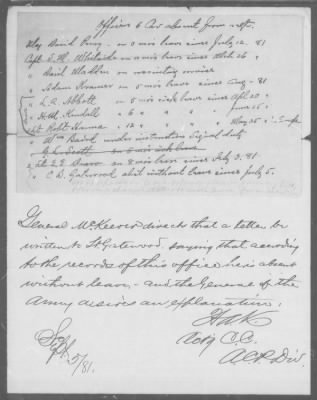 Officers 6 Cav absent from regt.
Maj David Perry - on 3 mos leave since July 12. 81
Capt. S. M. Whitside on 4 mos leave since 26
" David Madden on recruiting service
" Adam Kramer on 5 mos leave since Aug - 81
" L. A. Abbott - on 5 mos sick leave since Apl 20
" H. M. Kendall " 6 " " " June 15
1st Lt Robt Hanna " 12 " " " May 25
" Wm Baird under instruction Signal duty
on 8 mos leave since July 3. 81
" C. B. Gatewood abst without leave since July 5.
General McKeever directs that a letter be
written to Lt Gatewood saying that according
to the records of this office he is absent
without leave, - and the General of the
Army desires an explanation.
Actg C. C.
A.C.P. Div.
/81.